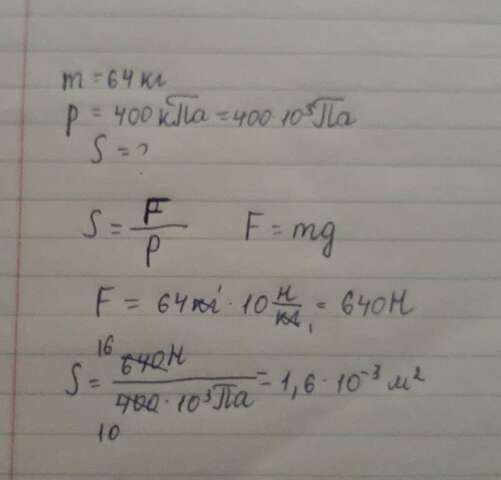 m = 64 кг
p = 400 кПа = 400·10³ Па
S = ?
S = F/p F = mg
F = 64 кг · 10 Н/кг = 640 Н
16
S = 640 Н / 400 · 10³ Па = 1,6 · 10⁻³ м²
10